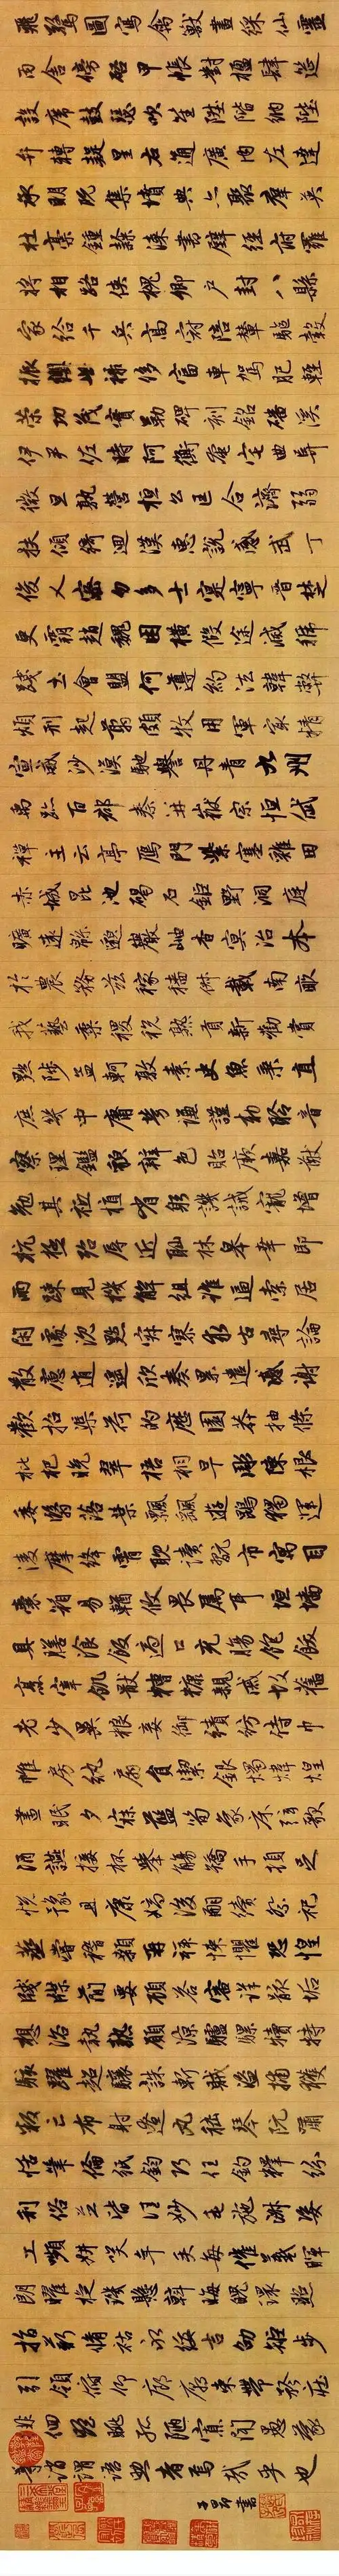 飛驚圖寫禽獸畫綵仙靈
丙舍傍啓甲帳對楹肆筵
設席鼓瑟吹笙陞階納陛
弁轉疑星右通廣內左達
承明既集墳典亦聚群英
杜稾鍾隸漆書壁經府羅
將相路俠槐卿戶封八縣
家給千兵高冠陪輦驅轂
振纓世祿侈富車駕肥輕
策功茂實勒碑刻銘磻溪
伊尹佐時阿衡奄宅曲阜
微旦孰營桓公匡合濟弱
扶傾綺迴漢惠說感武丁
俊乂密勿多士寔寧晉楚
更霸趙魏困橫假途滅虢
踐土會盟何遵約法韓弊
煩刑起翦頗牧用軍最精
宣威沙漠馳譽丹青九州
禹跡百郡秦并嶽宗恆岱
禪主云亭鴈門紫塞雞田
赤城昆池碣石鉅野洞庭
曠遠緜邈巖岫杳冥治本
於農務茲稼穡俶載南畝
我藝黍稷稅熟貢新勸賞
黜陟孟軻敦素史魚秉直
庶幾中庸勞謙謹勑聆音
察理鑑貌辨色貽厥嘉猷
勉其祗植省躬譏誡寵增
抗極殆辱近恥林皋幸即
兩疎見機解組誰逼索居
閑處沉默寂寥求古尋論
散慮逍遙欣奏累遣慼謝
歡招渠荷的歷園莽抽條
枇杷晚翠梧桐早彫陳根
委翳落葉飄颻遊鵾獨運
凌摩絳霄耽讀翫市寓目
囊箱易輶攸畏屬耳垣墻
具膳飡飯適口充腸飽飫
烹宰飢厭糟糠親戚故舊
老少異糧妾御績紡侍巾
帷房紈扇員潔銀燭煒煌
晝眠夕寐藍筍象床弦歌
酒讌接杯舉觴矯手頓足
悅豫且康嫡後嗣續祭祀
蒸嘗稽顙再拜悚懼恐惶
牋牒簡要顧答審詳骸垢
想浴執熱願涼驢騾犢特
駭躍超驤誅斬賊盜捕獲
叛亡布射遼丸嵇琴阮嘯
恬筆倫紙鈞巧任釣釋紛
利俗並皆佳妙毛施淑姿
工嚬妍笑年矢每催羲暉
朗曜旋璣懸斡晦魄環照
指薪修祜永綏吉劭矩步
引領俯仰廊廟束帶矜莊
徘徊瞻眺孤陋寡聞愚蒙
等誚謂語助者焉哉乎也
子昂書